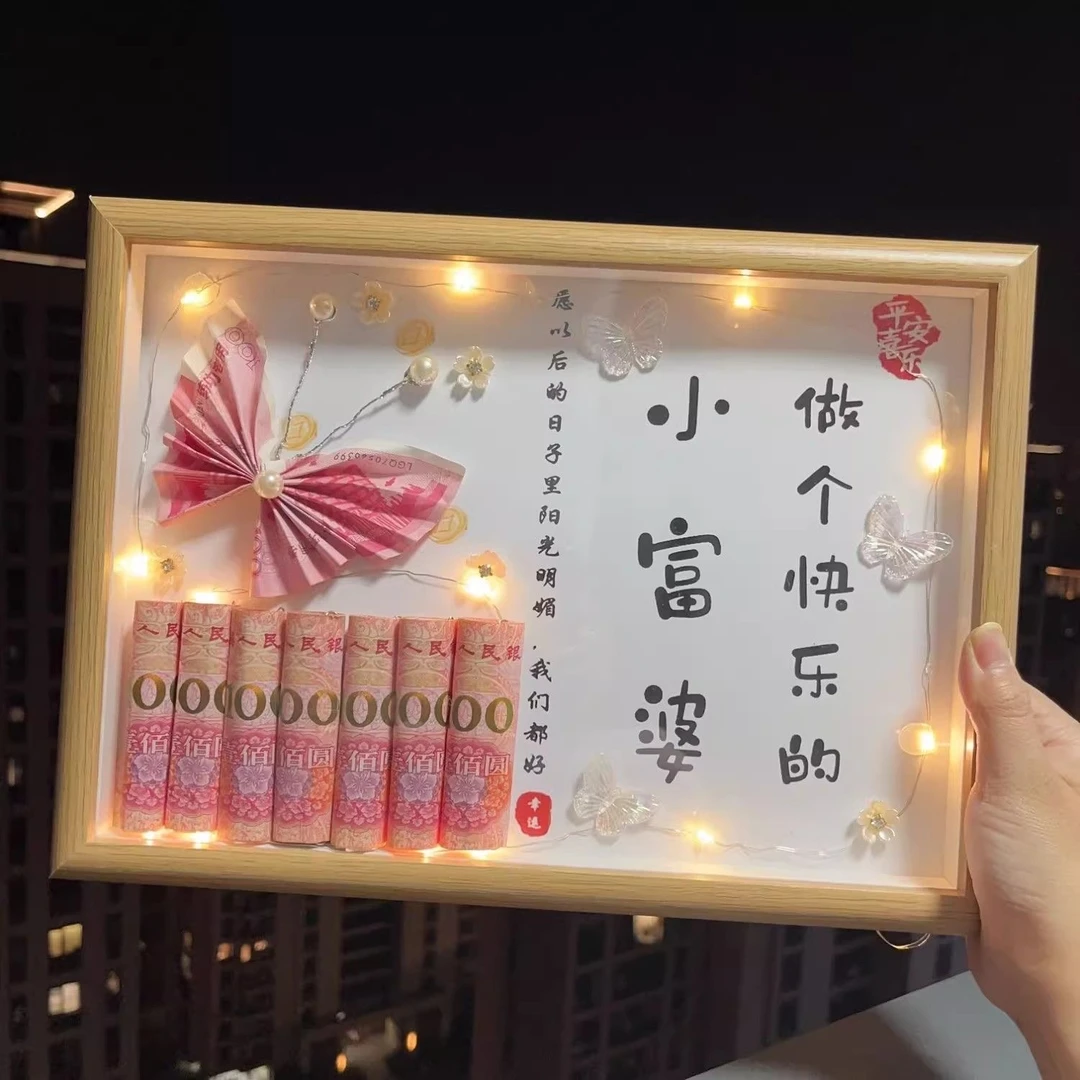 平安
喜乐
做个快乐的
小富婆
愿以后的日子里阳光明媚,我们都好
幸运
人民
人民
人民
人民銀
人民
人民
人民銀
0
00
00
00
00
00
00
佰
佰圆
佰
佰圆
佰
佰
佰圆